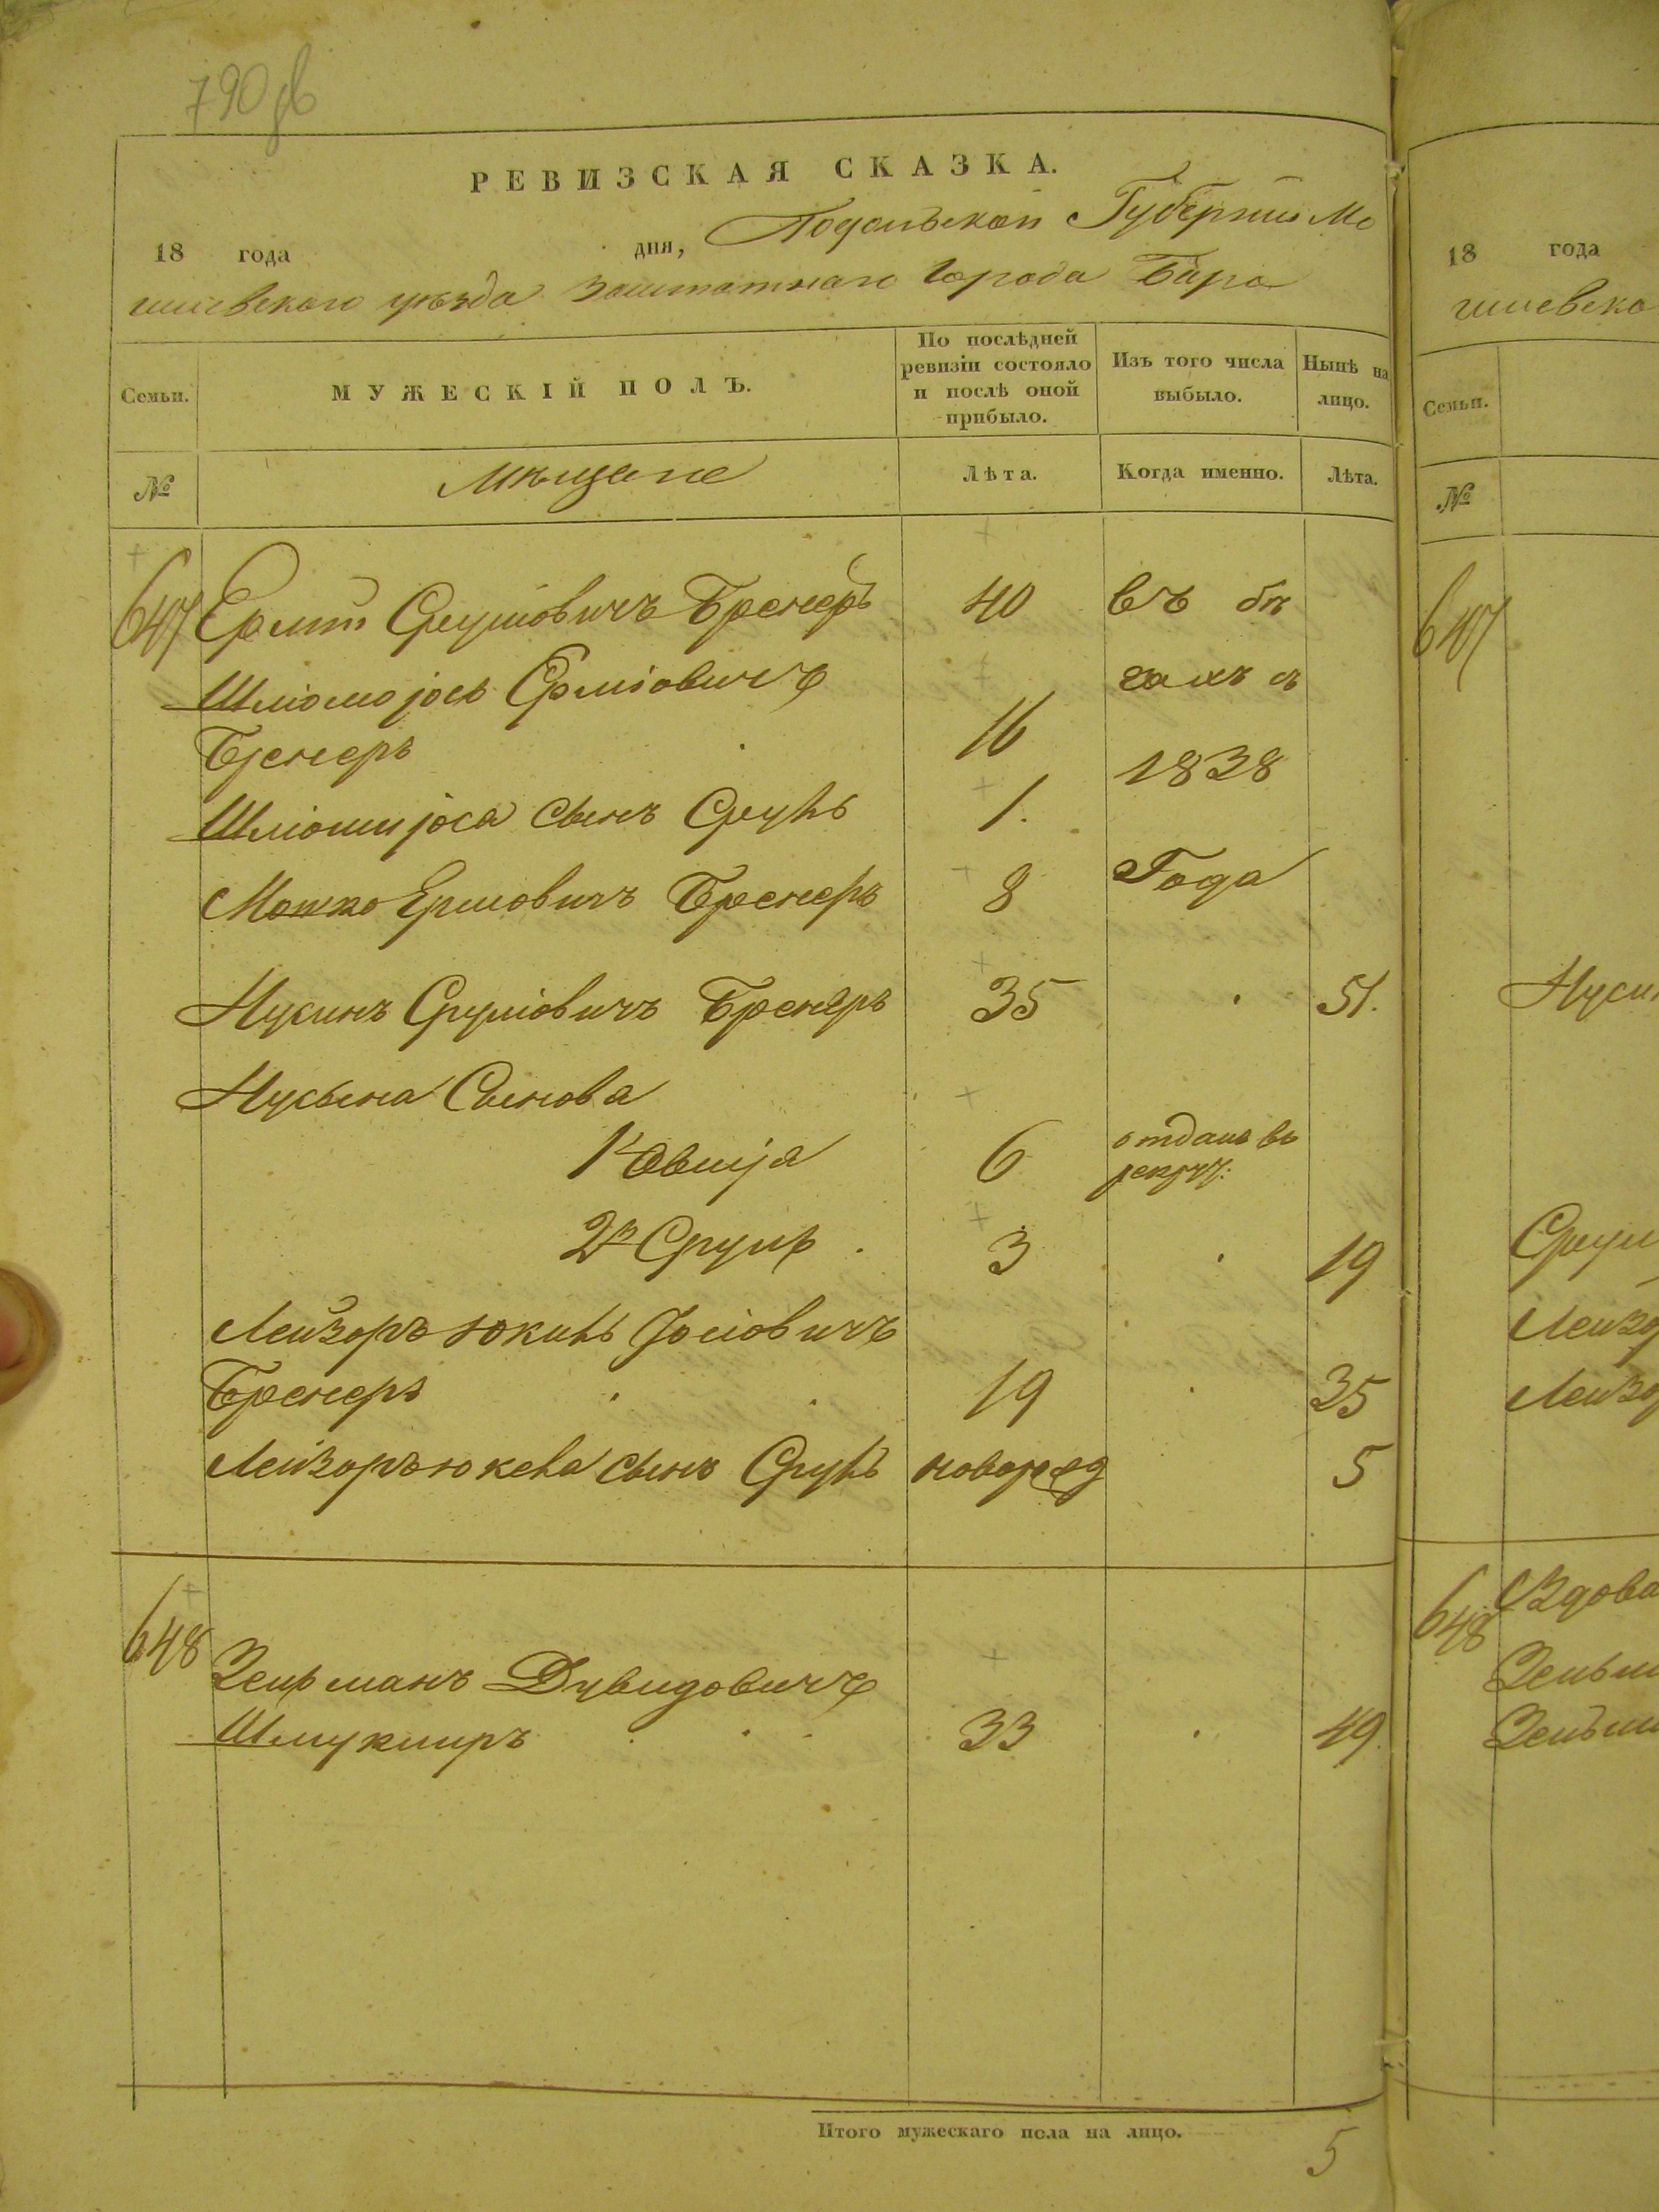 790 об
РЕВИЗСКАЯ СКАЗКА.
18 года дня, Подольской Губернии Мо
гилевскаго уѣзда Заштатнаго Города Бара
Семьи. МУЖЕСКІЙ ПОЛЪ. По послѣдней ревизіи состояло и послѣ оной прибыло. Изъ того числа выбыло. Нынѣ на лицо.
№ Мѣщане Лѣта. Когда именно. Лѣта.
647 Срулиовичъ Бренеръ 40 въ бѣ
Шліомо јось
гахъ съ
Бренеръ 16
1838
сынъ Сруль 1.
Мошко Ермовичъ Бренеръ 8 Года
Нусинъ Сруліовичъ Бренеръ 35 51.
Нусына Сынова
1й 6 отданъ въ
рекрут:
2й Сруль 3 19
Лейзоръ Юкиль Јосіовичъ
Бренеръ 19 35
Лейзоръ юкеля сынъ Сруль новорожд 5
648
Зельманъ Дувидовичъ
Шмуклиръ 33 49.
Итого мужескаго пола на лицо. 5
18 года
гилевска
Семьи.
№
647
Нусин
Срули
Лейзо
Лейзо
648 Вдова
Зельм
Зельм